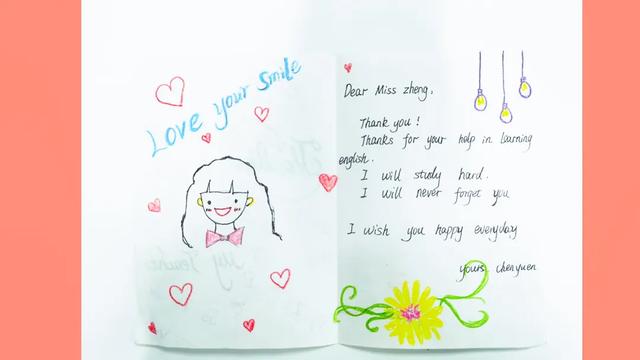 Love your Smile
Dear Miss zheng,
Thank you!
Thanks for your help in learning
english.
I will study hard.
I will never forget you
I wish you happy everyday
yours chenyuen
My Teache